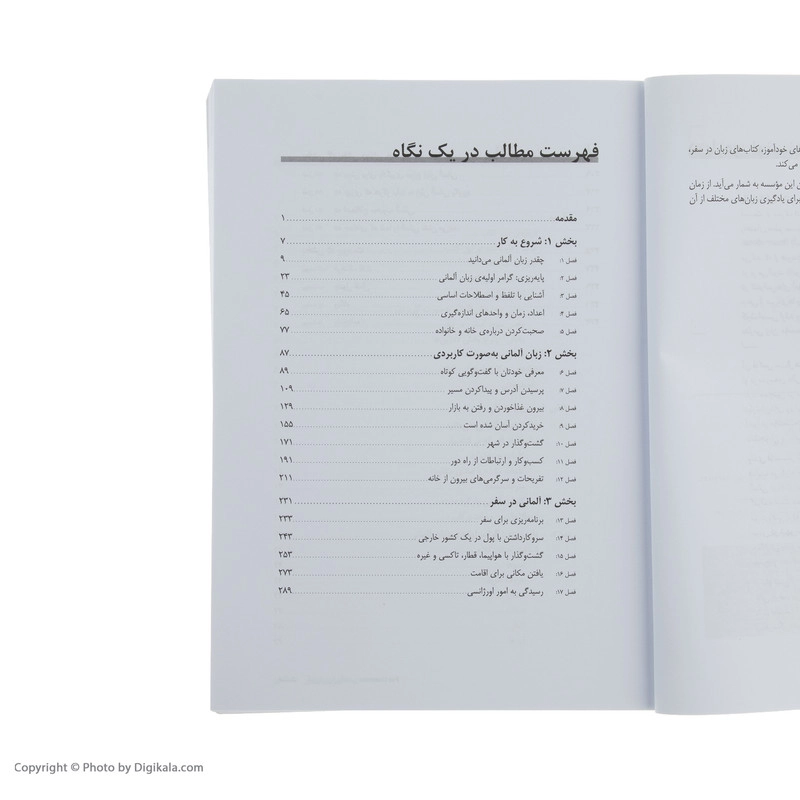 فهرست مطالب در یک نگاه
مقدمه ۱
بخش ۱: شروع به کار ۷
فصل ۱: چقدر زبان آلمانی می‌دانید ۹
فصل ۲: پایه‌ریزی: گرامر اولیه‌ی زبان آلمانی ۲۳
فصل ۳: آشنایی با تلفظ و اصطلاحات اساسی ۴۵
فصل ۴: اعداد، زمان و واحدهای اندازه‌گیری ۶۵
فصل ۵: صحبت‌کردن درباره‌ی خانه و خانواده ۷۷
بخش ۲: زبان آلمانی به‌صورت کاربردی ۸۷
فصل ۶: معرفی خودتان با گفت‌وگویی کوتاه ۸۹
فصل ۷: پرسیدن آدرس و پیداکردن مسیر ۱۰۹
فصل ۸: بیرون غذاخوردن و رفتن به بازار ۱۲۹
فصل ۹: خریدکردن آسان شده است ۱۵۵
فصل ۱۰: گشت‌وگذار در شهر ۱۷۱
فصل ۱۱: کسب‌وکار و ارتباطات از راه دور ۱۹۱
فصل ۱۲: تفریحات و سرگرمی‌های بیرون از خانه ۲۱۱
بخش ۳: آلمانی در سفر ۲۳۱
فصل ۱۳: برنامه‌ریزی برای سفر ۲۳۳
فصل ۱۴: سروکارداشتن با پول در یک کشور خارجی ۲۴۳
فصل ۱۵: گشت‌وگذار با هواپیما، قطار، تاکسی و غیره ۲۵۳
فصل ۱۶: یافتن مکانی برای اقامت ۲۷۳
فصل ۱۷: رسیدگی به امور اورژانسی ۲۸۹
های خودآموز، کتاب‌های زبان در سفر،
می‌کند.
این مؤسسه به شمار می‌آید. از زمان
برای یادگیری زبان‌های مختلف از آن
Copyright © Photo by Digikala.com